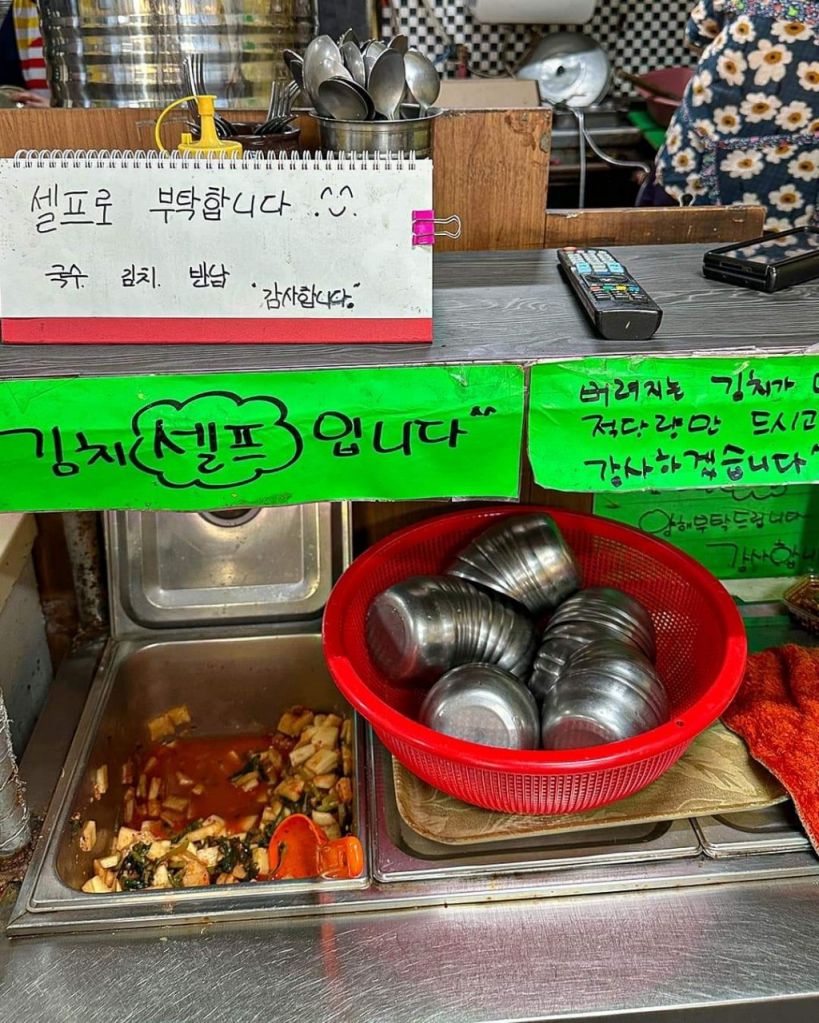 셀프로 부탁합니다 ^^
국수 김치 반납 "감사합니다"
김치 셀프 입니다^^
버려지는 김치가
적당량만 드시고
감사하겠습니다^
양해부탁드립니다
감사합니